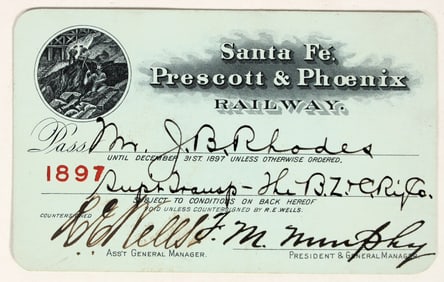 Santa Fe,
Prescott & Phœnix
RAILWAY.
Pass Mr. J. B. Rhodes
UNTIL DECEMBER 31ST. 1897 UNLESS OTHERWISE ORDERED,
1897
Supt Transp - The B. Z. & C. Ry. Co.
SUBJECT TO CONDITIONS ON BACK HEREOF
VOID UNLESS COUNTERSIGNED BY R.E. WELLS.
COUNTERSIGNED
R E Wells F. M. Murphy
ASS'T GENERAL MANAGER. PRESIDENT & GENERAL MANAGER.